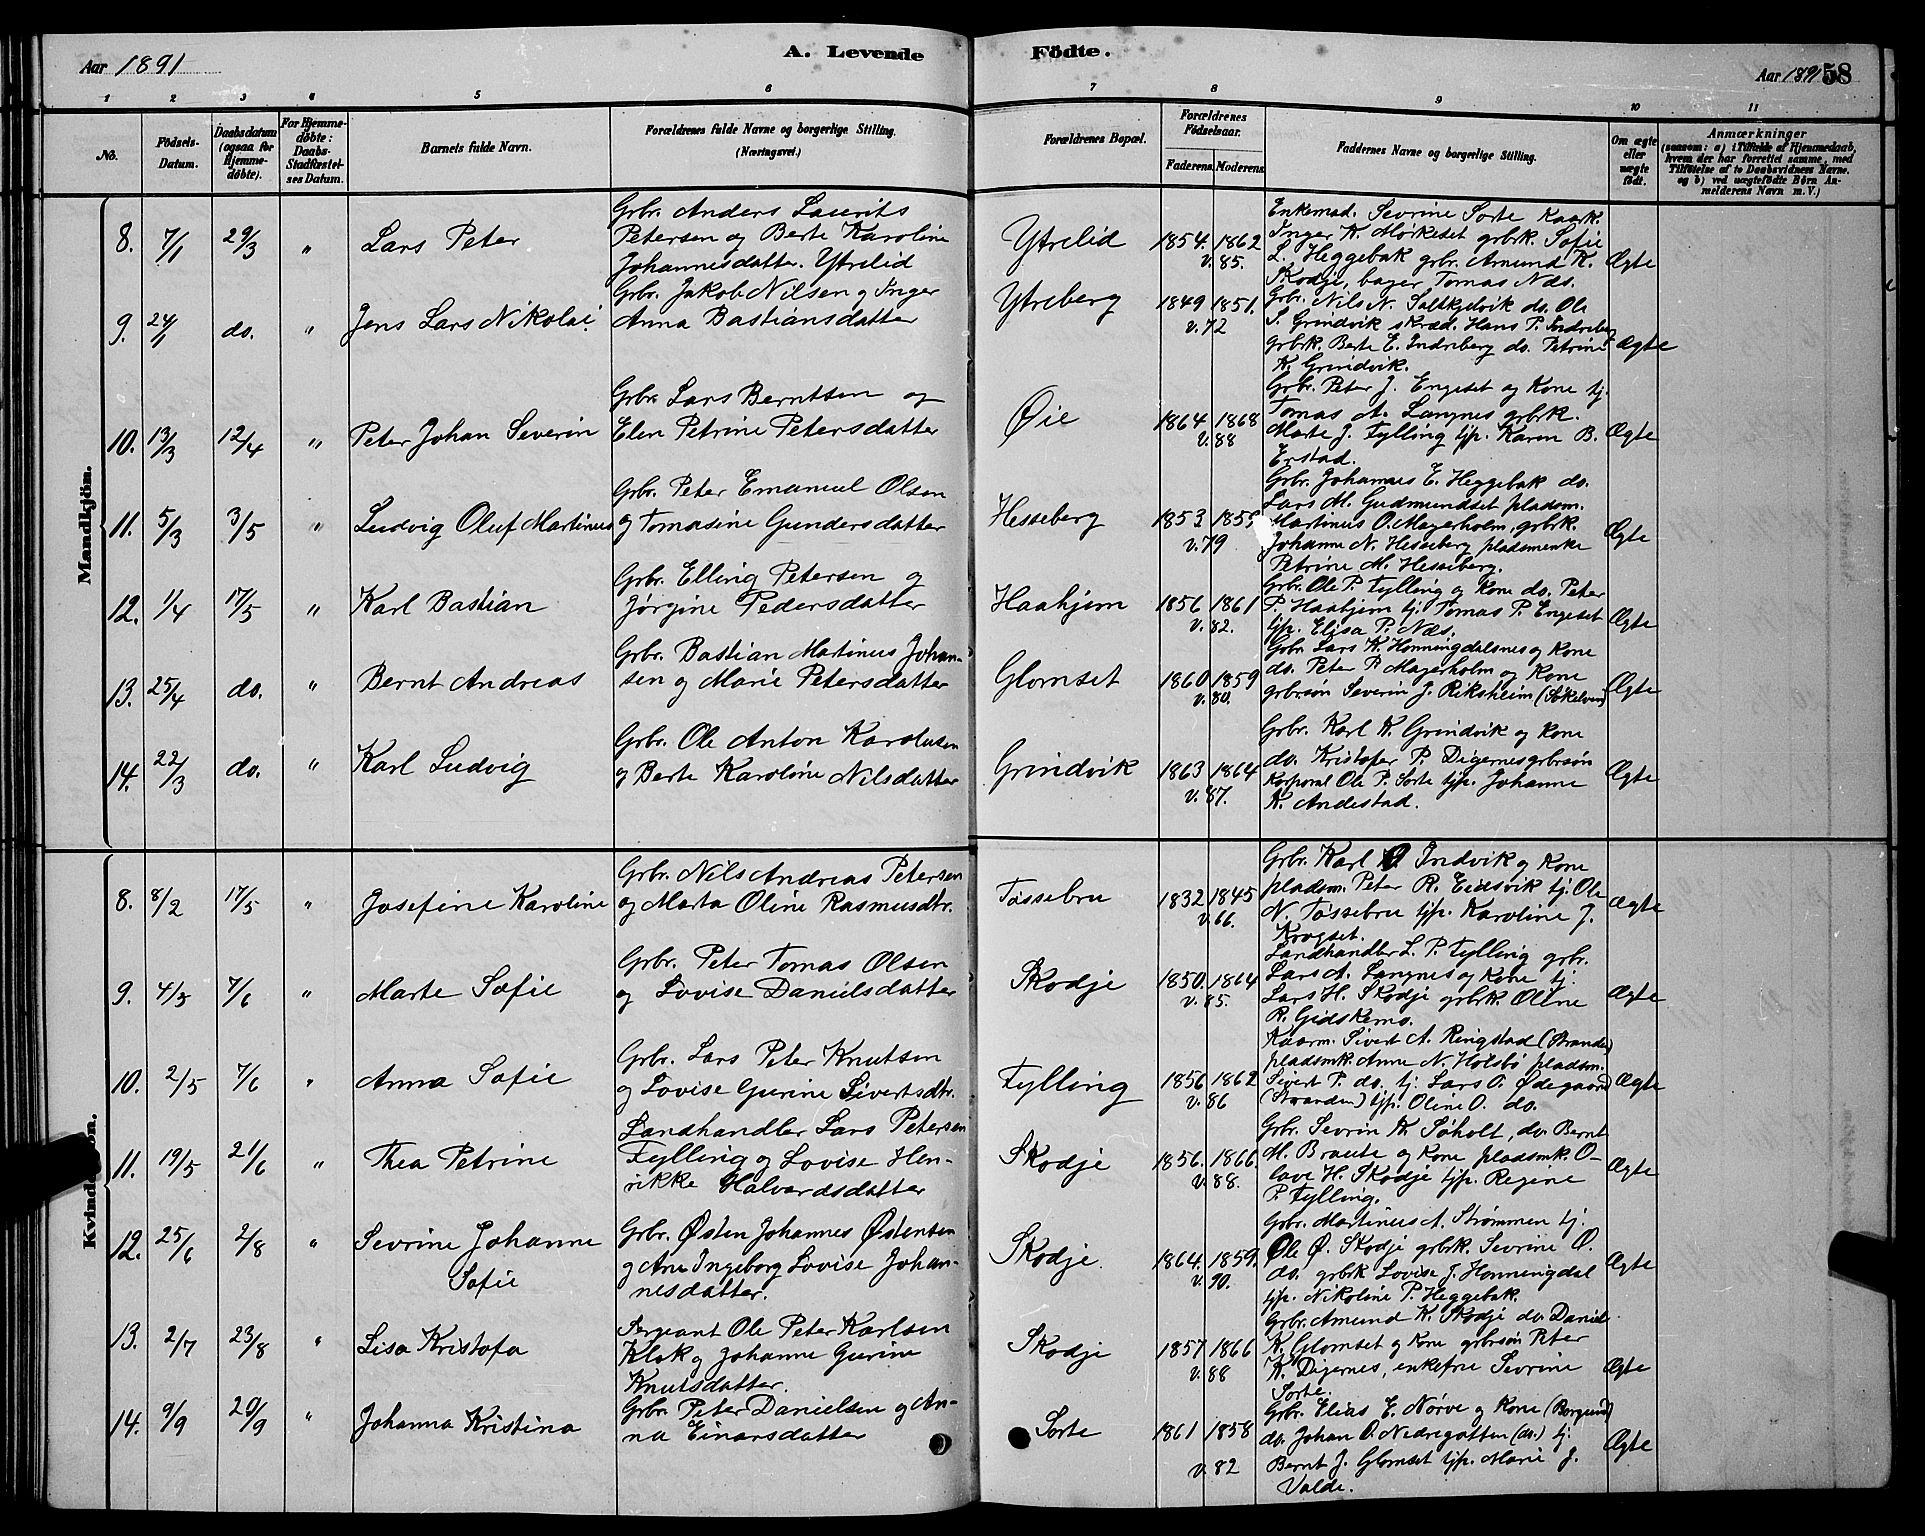 Aar 1891
A. Levende Födte.
Aar 1891 58
1 2 3 4 5 6 7 8 9 10 11
No.
Födsels-
Datum.
Daabsdatum
(ogsaa for
Hjemme-
døbte).
For Hjemme-
døbte:
Daabs-
Stadfæstel-
ses Datum.
Barnets fulde Navn.
Forældrenes fulde Navne og borgerlige Stilling.
(Næringsvei.)
Forældrenes Bopæl.
Forældrenes
Födselsaar.
Faderens. Moderens.
Faddernes Navne og borgerlige Stilling.
Om ægte
eller
uægte
født.
Anmærkninger
(saasom: a) i Tilfælde af Hjemmedaab,
hvem der har forrettet samme, med
Tilföielse af to Daabsvidners Navne.
og b) ved uægtefödte Börn An-
melderens Navn m. V.)
Mandkjön.
8. 7/1 29/3 " Lars Peter
Grbr. Anders Laurits
Petersen og Berte Karoline
Johannesdatter. Ytrelid
Ytrelid 1854. 1862
v. 85.
Enkemad. Sevrine Sorte Kaark.
Inger K. Mørkeset grbrk. Sofie
L. Heggebak grbr. Amund K.
Skodje, bager Tomas Næs.
Ægte
9. 24/1 do. " Jens Lars Nikolai
Grbr. Jakob Nilsen og Inger
Anna Bastiansdatter
Ytreberg 1849 1851.
v. 72
Grbr. Nils N. Saltkjelvik do. Ole
S. Grindvik skræd. Hans P. Indreberg
grbrk. Berte E. Indreberg do. Petrine
K. Grindvik.
Ægte
10. 13/3 12/4 " Peter Johan Severin
Grbr. Lars Berntsen og
Elen Petrine Petersdatter
Øie 1864 1868
v. 88
Grbr. Peter J. Engeset og Kone tj.
Tomas A. Langnes grbrk.
Marte J. Fylling tjp. Karen B.
Erstad.
Ægte
11. 5/3 3/5 " Ludvig Oluf Martinus
Grbr. Peter Emanuel Olsen
og Tomasine Gundersdatter
Hesseberg 1853 185
v. 79
Grbr. Johannes E. Heggebak do.
Lars M. Gudmundset pladsm.
Martinus O. Magerholm, grbrk.
Johanne N. Hesseberg pladsmenke
Petrine M. Hesseberg.
Ægte
12. 1/4 17/5 " Karl Bastian
Grbr. Elling Petersen og
Jørgine Pedersdatter
Haahjem 1856 1861
v. 82.
Grbr. Ole P. Fylling og Kone do. Peter
P. Haahjem tj. Tomas P. Engeset
tjp. Elisa P. Næs.
Ægte
13. 25/4 do. " Bernt Andreas
Grbr. Bastian Martinus Johan-
sen og Marie Petersdatter
Glomset 1860 1859
v. 80.
Grbr. Lars K. Honningdalsnes og Kone
do. Peter P. Magerholm og Kone
grbrsøn Severin J. Riksheim (Søkelven)
Ægte
14. 22/3 do. " Karl Ludvig
Grbr. Ole Anton Karolusen
og Berte Karoline Nilsdatter
Grindvik 1863 1864
v. 87.
Grbr. Karl K. Grindvik og Kone
do. Kristofer P. Digernes grbrsøn
Korporal Ole P. Sorte tjp. Johanne
K. Andestad.
Ægte
Kvindekjön.
8. 8/2 17/5 " Josefine Karoline
Grbr. Nils Andreas Petersen
og Marta Oline Rasmusdtr.
Tøssebru 1832 1845
v. 66.
Grbr. Karl O. Indvik og Kone
pladsm. Peter R. Eidsvik tj. Ole
N. Tøssebru tjp. Karoline J.
Krogset.
Ægte
9. 4/5 7/6 " Marte Sofie
Grbr. Peter Tomas Olsen
og Lovise Danielsdatter
Skodje 1850. 1864
v. 85.
Landhandler L. P. Fylling grbr.
Lars A. Langnes og Kone tj.
Lars H. Skodje grbrk. Oline
R. Gidskemo.
Ægte
10. 2/5 7/6 " Anna Sofie
Grbr. Lars Peter Knutsen
og Lovise Gurine Sivertsdtr.
Fylling 1856 1862
v. 86
Kaarm. Sivert A. Ringstad (Stranden)
pladsmk. Anne N. Holsbø pladsm.
Sivert P. do. tj. Lars O. Ødegaard
(Stranden) tjp. Oline O. do.
Ægte
11. 19/5 21/6 " Thea Petrine
Landhandler Lars Petersen
Fylling og Lovise Hen-
rikke Halvardsdatter
Skodje 1856. 1866.
v. 88.
Grbr. Sevrin K. Søholt, do. Bernt
M. Braute og Kone pladsmk. O-
lave H. Skodje tjp. Regine
P. Fylling.
Ægte
12. 25/6 2/8 " Sevrine Johanne
Sofie
Grbr. Østen Johannes Østensen
og Ane Ingeborg Lovise Johan-
nesdatter.
Skodje. 1864. 1859.
v. 90.
Grbr. Martinus A. Strømmen tj.
Ole Ø. Skodje grbrk. Sevrine O.
do. grbrk Lovise J. Honningdal
tjp. Nikoline P. Heggebak.
Ægte
13. 2/7 23/8 " Lisa Kristofa
Sergeant Ole Peter Karlsen
Klok og Johanne Gurine
Knutsdatter.
Skodje 1857 1866
v. 88
Grbr. Amund K. Skodje do. Daniel
K. Glomset og Kone grbrsøn Peter
K. Digernes, enkefrue Sevrine
Sorte.
Ægte
14. 9/9 20/9 " Johanna Kristina
Grbr. Peter Danielsen og An-
na Einarsdatter
Sorte 1861 1858
v. 82
Grbr. Elias E. Nørve og Kone (Borgund)
do. Johan O. Nedregotten (do.) tj.
Bernt J. Glomset tjp. Marie J.
Valde.
Ægte